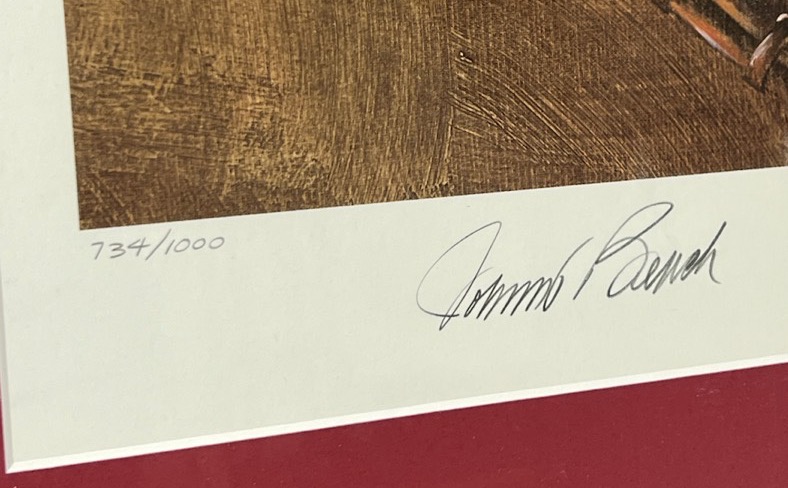 734/1000
Johnny Bench